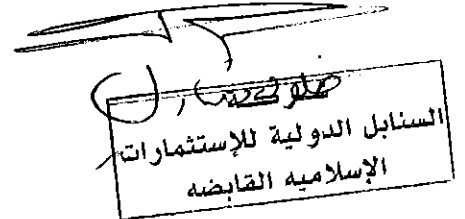 السنابل الدولية للإستثمارات
الإسلاميه القابضه